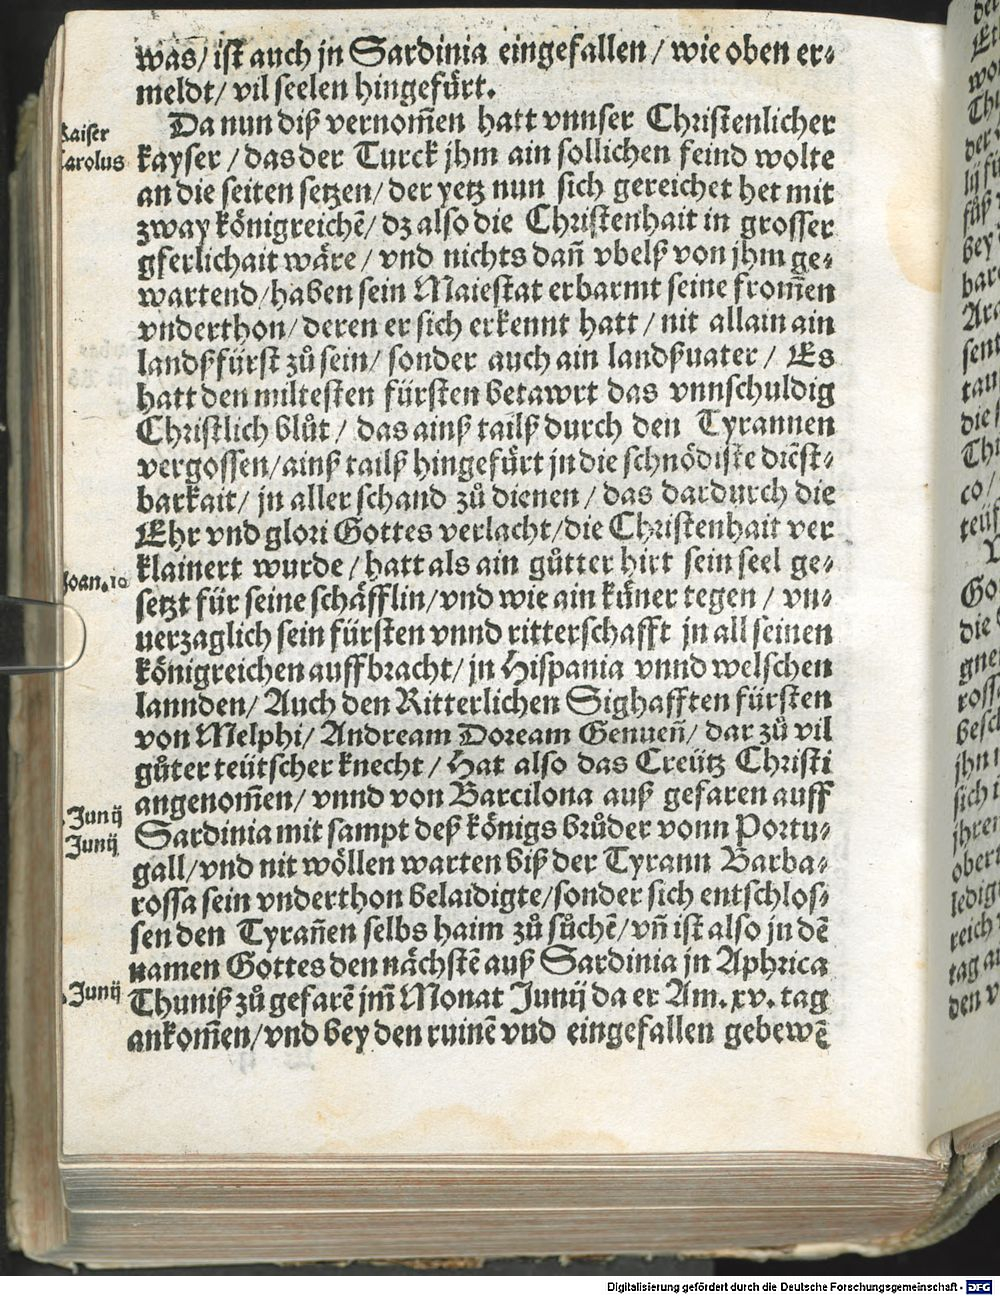 was/ ist auch jn Sardinia eingefallen / wie oben er⸗
meldt/ vil seelen hingefürt.
Da nun diß vernom̃en hatt vnnser Christenlicher
Kaiser
Carolus
kayser / das der Turck jhm ain sollichen feind wolte
an die seiten setzen/ der yetz nun sich gereichet het mit
zway königreichẽ/ dz also die Christenhait in grosser
gferlichait wäre / vnd nichts dañ vbelß von jhm ge⸗
wartend/haben sein Maiestat erbarmt seine from̃en
vnderthon/ deren er sich erkennt hatt / nit allain ain
landßfürst zů sein/ sonder auch ain landßuater / Es
hatt den miltesten fürsten betawrt das vnnschuldig
Christlich blůt / das ainß tailß durch den Tyrannen
vergossen/ainß tailß hingefürt jn die schnödiste diẽst⸗
barkait/ jn aller schand zů dienen / das dardurch die
Ehr vnd glori Gottes verlacht/die Christenhait ver
Joan.10
klainert wurde / hatt als ain gůtter hirt sein seel ge⸗
setzt für seine schäfflin/vnd wie ain küner tegen / vn⸗
uerzaglich sein fürsten vnnd ritterschafft jn all seinen
königreichen auffbracht/ jn Hispania vnnd welschen
lannden/ Auch den Ritterlichen Sighafften fürsten
von Melphi/ Andream Doream Genueñ/ dar zů vil
gůter teütscher knecht / Hat also das Creütz Christi
angenom̃en/ vnnd von Barcilona auß gefaren auff
Junij
Junij
Sardinia mit sampt deß königs brůder vonn Portu⸗
gall/vnd nit wöllen warten biß der Tyrann Barba⸗
rossa sein vnderthon belaidigte/sonder sich entschlos⸗
sen den Tyrañen selbs haim zů sůchẽ/vñ ist also jn dẽ
namen Gottes den nächstẽ auß Sardinia jn Aphrica
Junij
Thuniß zů gefarẽ jm̃ Monat Junij da er Am. xv. tag
ankom̃en/vnd bey den ruinẽ vnd eingefallen gebewẽ
Digitalisierung gefördert durch die Deutsche Forschungsgemeinschaft - DFG